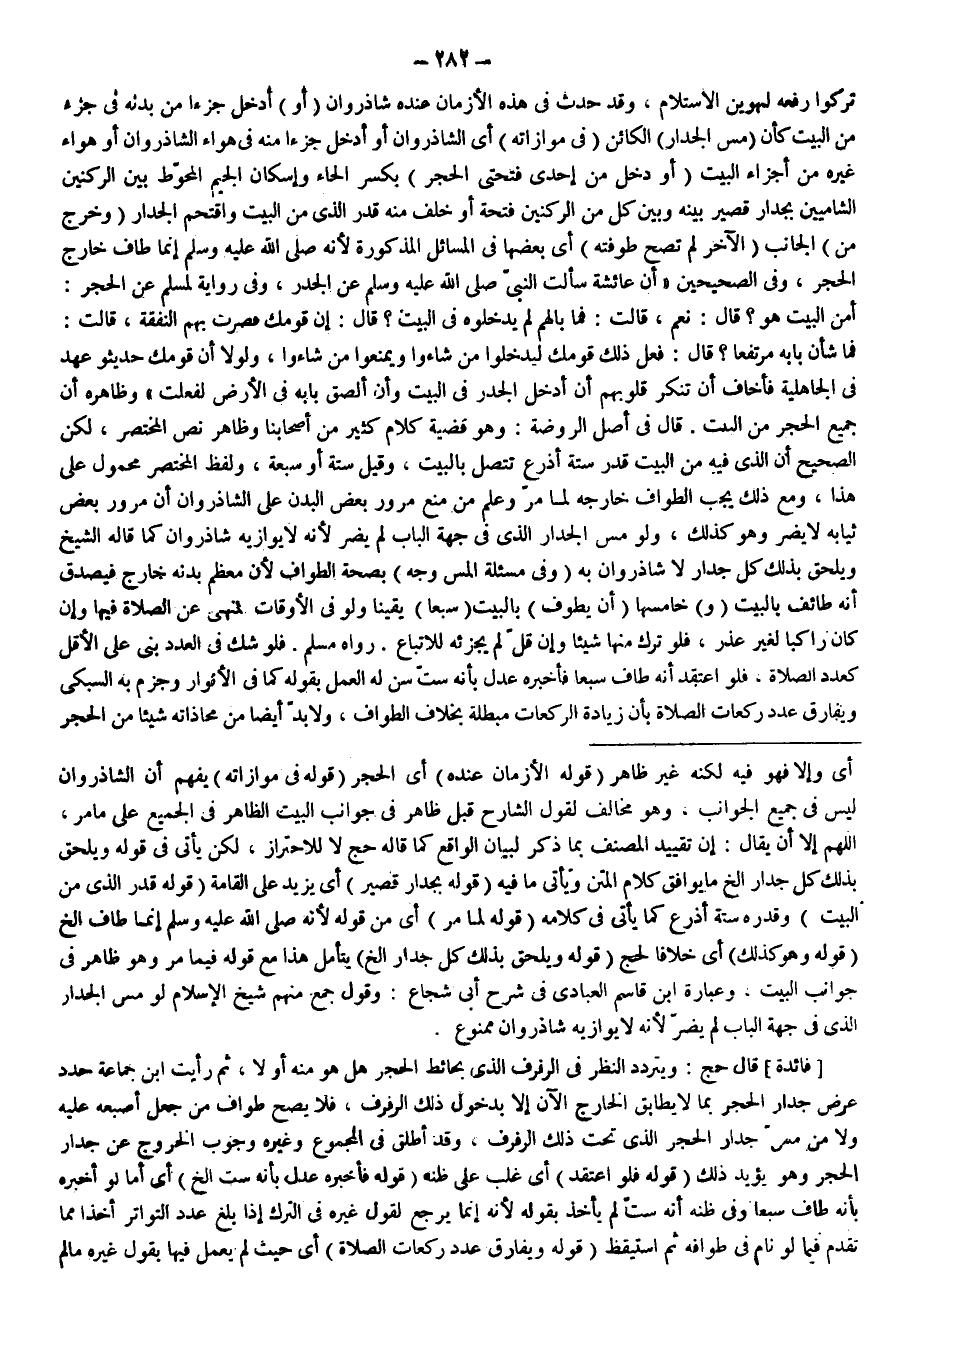 — ٢٨٢ —
تركوا رفعه لتهوين الاستلام ، وقد حدث فى هذه الأزمان عنده شاذروان ( أو ) أدخل جزءا من بدنه فى جزء
من البيت كأن (مس الجدار) الكائن ( فى موازاته ) أى الشاذروان أو أدخل جزءا منه فى هواء الشاذروان أو هواء
غيره من أجزاء البيت ( أو دخل من إحدى فتحتى الحجر ) بكسر الحاء وإسكان الجيم المحوّط بين الركنين
الشاميين بجدار قصير بينه وبين كل من الركنين فتحة أو خلف منه قدر الذى من البيت واقتحم الجدار ( وخرج
من ) الجانب ( الآخر لم تصح طوفته ) أى بعضها فى المسائل المذكورة لأنه صلى الله عليه وسلم إنما طاف خارج
الحجر ، وفى الصحيحين « أن عائشة سألت النبىّ صلى الله عليه وسلم عن الجدر ، وفى رواية لمسلم عن الحجر :
أمن البيت هو ؟ قال : نعم ، قالت : فما بالهم لم يدخلوه فى البيت ؟ قال : إن قومك قصرت بهم النفقة ، قالت :
فما شأن بابه مرتفعا ؟ قال : فعل ذلك قومك ليدخلوا من شاءوا ويمنعوا من شاءوا ، ولولا أن قومك حديثو عهد
فى الجاهلية فأخاف أن تنكر قلوبهم أن أدخل الجدر فى البيت وأن ألصق بابه فى الأرض لفعلت » وظاهره أن
جميع الحجر من البيت . قال فى أصل الروضة : وهو قضية كلام كثير من أصحابنا وظاهر نص المختصر ، لكن
الصحيح أن الذى فيه من البيت قدر ستة أذرع تتصل بالبيت ، وقيل ستة أو سبعة ، ولفظ المختصر محمول على
هذا ، ومع ذلك يجب الطواف خارجه لمـا مرّ وعلم من منع مرور بعض البدن على الشاذروان أن مرور بعض
ثيابه لايضر وهو كذلك ، ولو مس الجدار الذى فى جهة الباب لم يضر لأنه لايوازيه شاذروان كما قاله الشيخ
ويلحق بذلك كل جدار لا شاذروان به ( وفى مسئلة المس وجه ) بصحة الطواف لأن معظم بدنه خارج فيصدق
أنه طائف بالبيت ( و ) خامسها ( أن يطوف ) بالبيت( سبعا ) يقينا ولو فى الأوقات المنهى عن الصلاة فيها وإن
كان راكبا لغير عذر ، فلو ترك منها شيئا وإن قلّ لم يجزئه للاتباع . رواه مسلم . فلو شك فى العدد بنى على الأقل
كعدد الصلاة ، فلو اعتقد أنه طاف سبعا فأخبره عدل بأنه ستّ سن له العمل بقوله كما فى الأنوار وجزم به السبكى
ويفارق عدد ركعات الصلاة بأن زيادة الركعات مبطلة بخلاف الطواف ، ولابدّ أيضا من محاذاته شيئا من الحجر
أى وإلا فهو فيه لكنه غير ظاهر ( قوله الأزمان عنده ) أى الحجر (قوله فى موازاته ) يفهم أن الشاذروان
ليس فى جميع الجوانب . وهو مخالف لقول الشارح قبل ظاهر فى جوانب البيت الظاهر فى الجميع على مامر ،
اللهم إلا أن يقال : إن تقييد المصنف بما ذكر لبيان الواقع كما قاله حج لا للاحتراز ، لكن يأتى فى قوله ويلحق
بذلك كل جدار الخ مايوافق كلام المتن ويأتى ما فيه ( قوله بجدار قصير ) أى يزيد على القامة ( قوله قدر الذى من
البيت ) وقدره ستة أذرع كما يأتى فى كلامه ( قوله لمـا مر ) أى من قوله لأنه صلى الله عليه وسلم إنمـا طاف الخ
( قوله وهو كذلك) أى خلافا لحج ( قوله ويلحق بذلك كل جدار الخ) يتأمل هذا مع قوله فيما مر وهو ظاهر فى
جوانب البيت . وعبارة ابن قاسم العبادى فى شرح أبى شجاع : وقول جمع منهم شيخ الإسلام لو مس الجدار
الذى فى جهة الباب لم يضرّ لأنه لايوازيه شاذروان ممنوع .
[ فائدة ] قال حج : ويتردد النظر فى الرفرف الذى بحائط الحجر هل هو منه أو لا ، ثم رأيت ابن جماعة حدد
عرض جدار الحجر بما لايطابق الخارج الآن إلا بدخول ذلك الرفرف ، فلا يصح طواف من جعل أصبعه عليه
ولا من مسّ جدار الحجر الذى تحت ذلك الرفرف ، وقد أطلق فى المجموع وغيره وجوب الخروج عن جدار
الحجر وهو يؤيد ذلك ( قوله فلو اعتقد ) أى غلب على ظنه ( قوله فأخبره عدل بأنه ست الخ ) أى أما لو أخبره
بأنه طاف سبعا وفى ظنه أنه ستّ لم يأخذ بقوله لأنه إنما يرجع لقول غيره فى الترك إذا بلغ عدد التواتر أخذا مما
تقدم فيما لو نام فى طوافه ثم استيقظ ( قوله ويفارق عدد ركعات الصلاة ) أى حيث لم يعمل فيها بقول غيره مالم